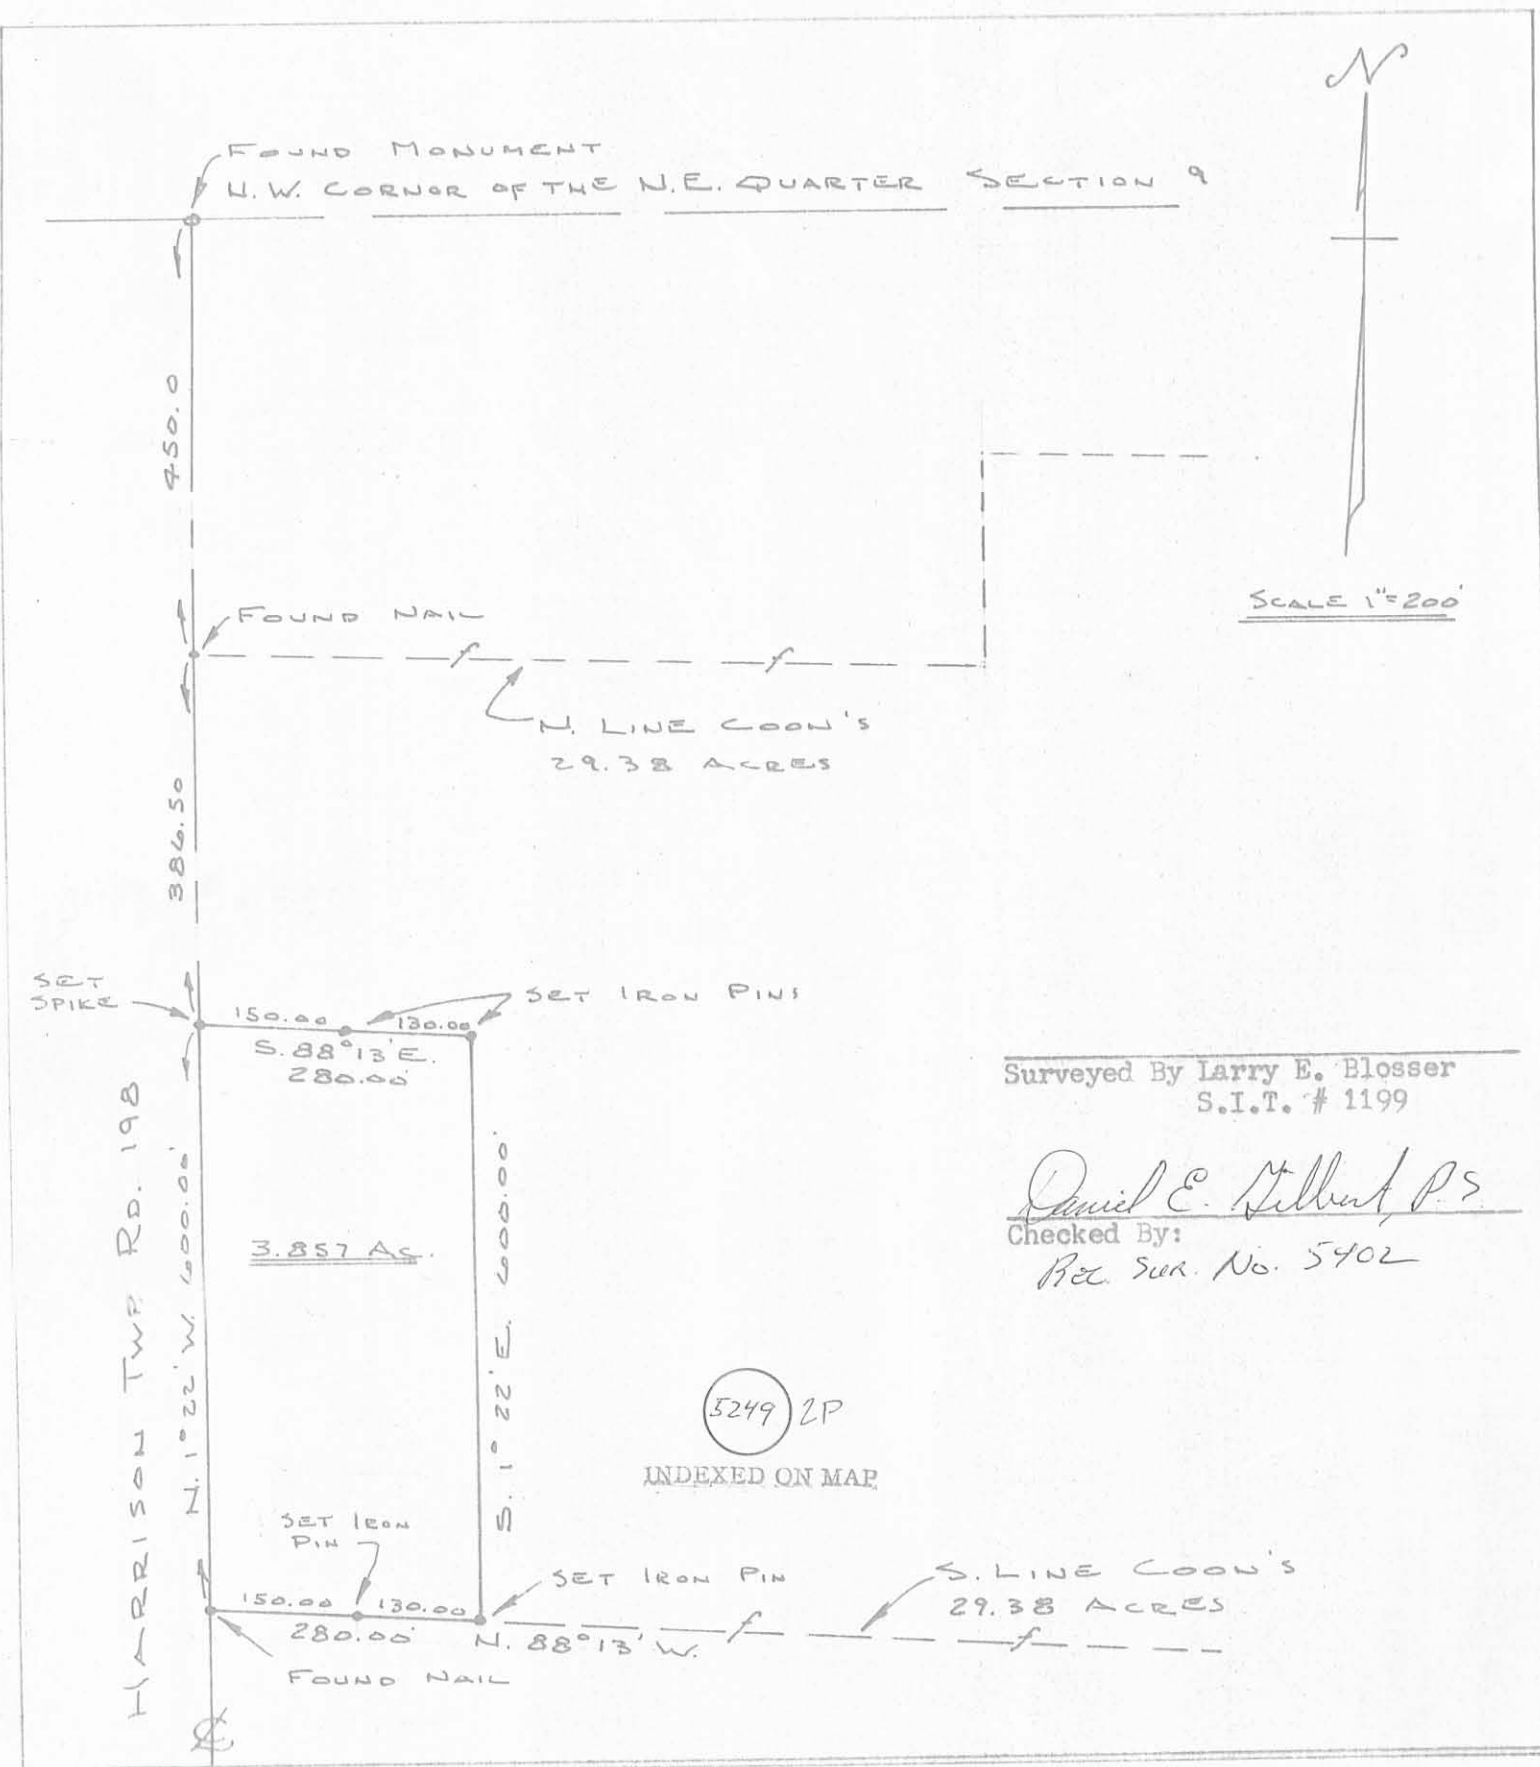 N
FOUND MONUMENT
N.W. CORNOR OF THE N.E. QUARTER SECTION 9
450.0
SCALE 1"=200'
FOUND NAIL
N. LINE COON'S
29.38 ACRES
386.50
SET
SPIKE
SET IRON PINS
150.00 130.00
S. 88°13'E.
280.00'
HARRISON TWP. RD. 198
N. 1°22' W. 600.00'
3.857 AC.
S. 1°22'E. 600.00'
Surveyed By Larry E. Blosser
S.I.T. # 1199
Daniel E. Gilbert, P.S.
Checked By:
REG. SUR. No. 5402
5249 2P
INDEXED ON MAP
SET IRON
PIN
SET IRON PIN
S. LINE COON'S
29.38 ACRES
150.00 130.00
280.00' N. 88°13' W.
FOUND NAIL
℄